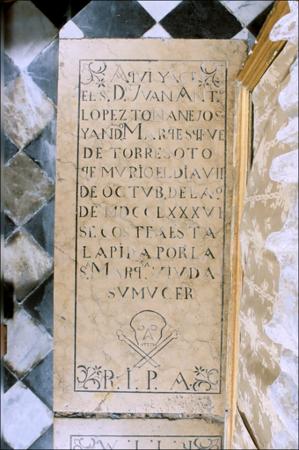 AQVI YACE
EL S. D. JVAN ANT.
LOPEZ TOÑANEJOS
Y AND MARQES QE FVE
DE TORRESOTO
QE MVRIO EL DIA VII
DE OCTVB. DE LA Ñ
DE MDCCLXXXVI
SE COSTEA ESTA
LAPIDA POR LA
S. MARQ. VIVDA
SV MVGER
R. I. P. A.